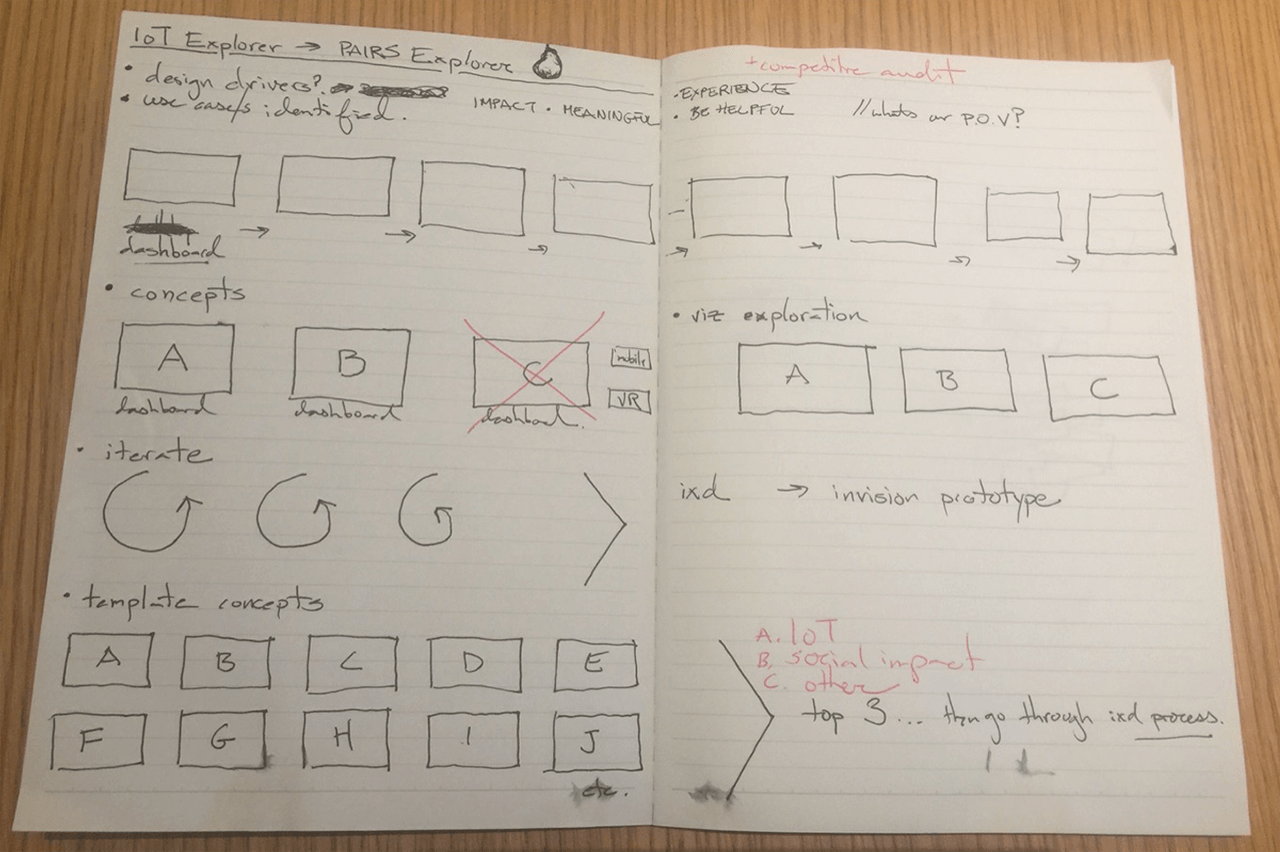 IoT Explorer → PAIRS Explorer
• design drivers? →
• use case/s identified.
IMPACT • MEANINGFUL
dashboard
• concepts
A
B
C
mobile
VR
dashboard
dashboard
dashboard.
• iterate
• template concepts
A
B
C
D
E
F
G
H
I
J
etc.
+ competitive audit
• EXPERIENCE
• BE HELPFUL
// whats our P.O.V?
• viz exploration
A
B
C
ixd → invision prototype
A. IoT
B. social impact
C. other
top 3... then go through ixd process.